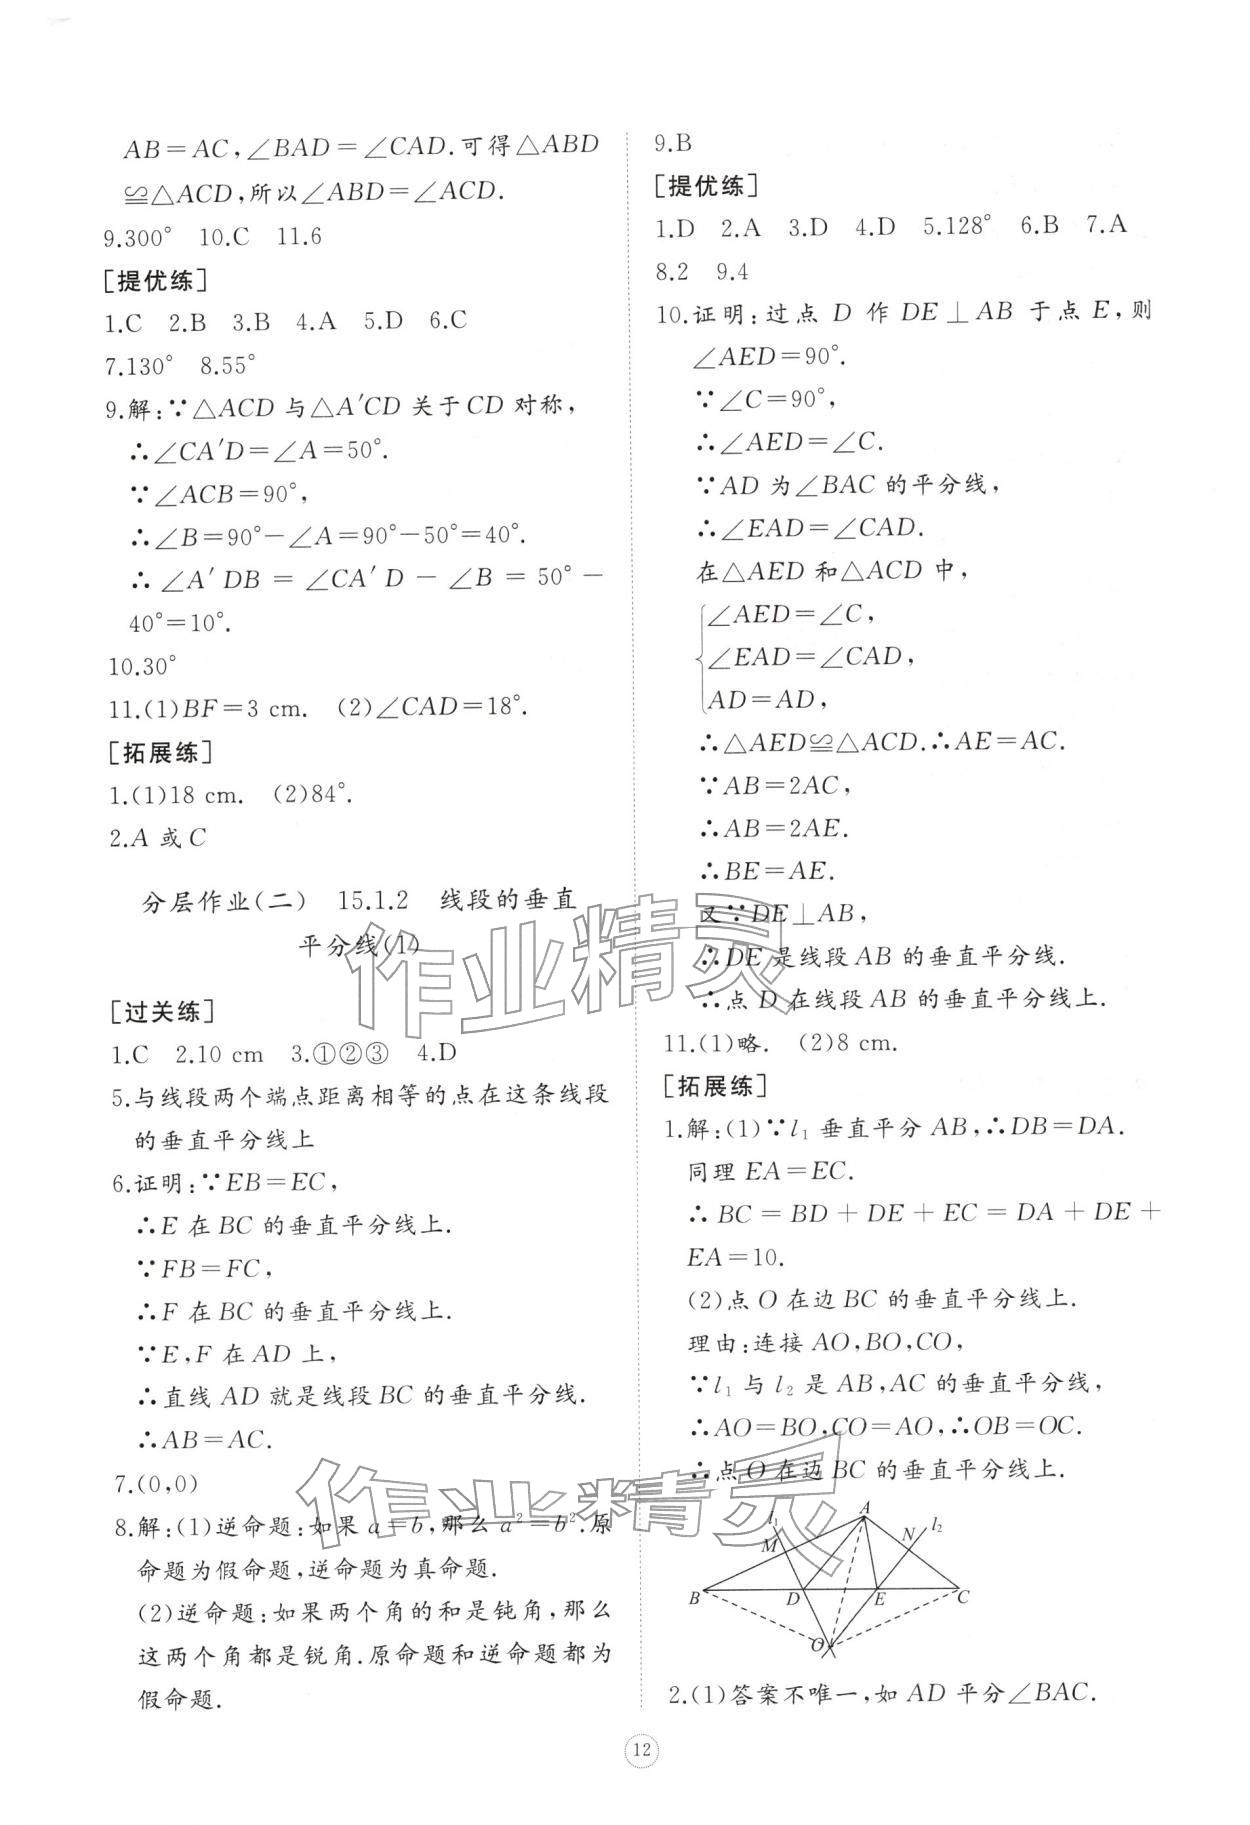 AB=AC,∠BAD=∠CAD.可得△ABD
≌△ACD,所以∠ABD=∠ACD.
9.300° 10.C 11.6
[提优练]
1.C 2.B 3.B 4.A 5.D 6.C
7.130° 8.55°
9.解:∵△ACD与△A′CD关于CD对称,
∴∠CA′D=∠A=50°.
∵∠ACB=90°,
∴∠B=90°-∠A=90°-50°=40°.
∴∠A′DB=∠CA′D-∠B=50°-
40°=10°.
10.30°
11.(1)BF=3 cm. (2)∠CAD=18°.
[拓展练]
1.(1)18 cm. (2)84°.
2.A或C
分层作业(二) 15.1.2 线段的垂直
平分线(1)
[过关练]
1.C 2.10 cm 3.①②③ 4.D
5.与线段两个端点距离相等的点在这条线段
的垂直平分线上
6.证明:∵EB=EC,
∴E在BC的垂直平分线上.
∵FB=FC,
∴F在BC的垂直平分线上.
∵E,F在AD上,
∴直线AD就是线段BC的垂直平分线.
∴AB=AC.
7.(0,0)
8.解:(1)逆命题:如果a=b,那么a²=b².原
命题为假命题,逆命题为真命题.
(2)逆命题:如果两个角的和是钝角,那么
这两个角都是锐角.原命题和逆命题都为
假命题.
9.B
[提优练]
1.D 2.A 3.D 4.D 5.128° 6.B 7.A
8.2 9.4
10.证明:过点D作DE⊥AB于点E,则
∠AED=90°.
∵∠C=90°,
∴∠AED=∠C.
∵AD为∠BAC的平分线,
∴∠EAD=∠CAD.
在△AED和△ACD中,
∠AED=∠C,
∠EAD=∠CAD,
AD=AD,
∴△AED≌△ACD.∴AE=AC.
∵AB=2AC,
∴AB=2AE.
∴BE=AE.
又∵DE⊥AB,
∴DE是线段AB的垂直平分线.
∴点D在线段AB的垂直平分线上.
11.(1)略. (2)8 cm.
[拓展练]
1.解:(1)∵l₁垂直平分AB,∴DB=DA.
同理EA=EC.
∴BC=BD+DE+EC=DA+DE+
EA=10.
(2)点O在边BC的垂直平分线上.
理由:连接AO,BO,CO,
∵l₁与l₂是AB,AC的垂直平分线,
∴AO=BO,CO=AO,∴OB=OC.
∴点O在边BC的垂直平分线上.
l₁ A N l₂
M
B D E C
O
2.(1)答案不唯一,如AD平分∠BAC.
12
作业精灵
作业精灵